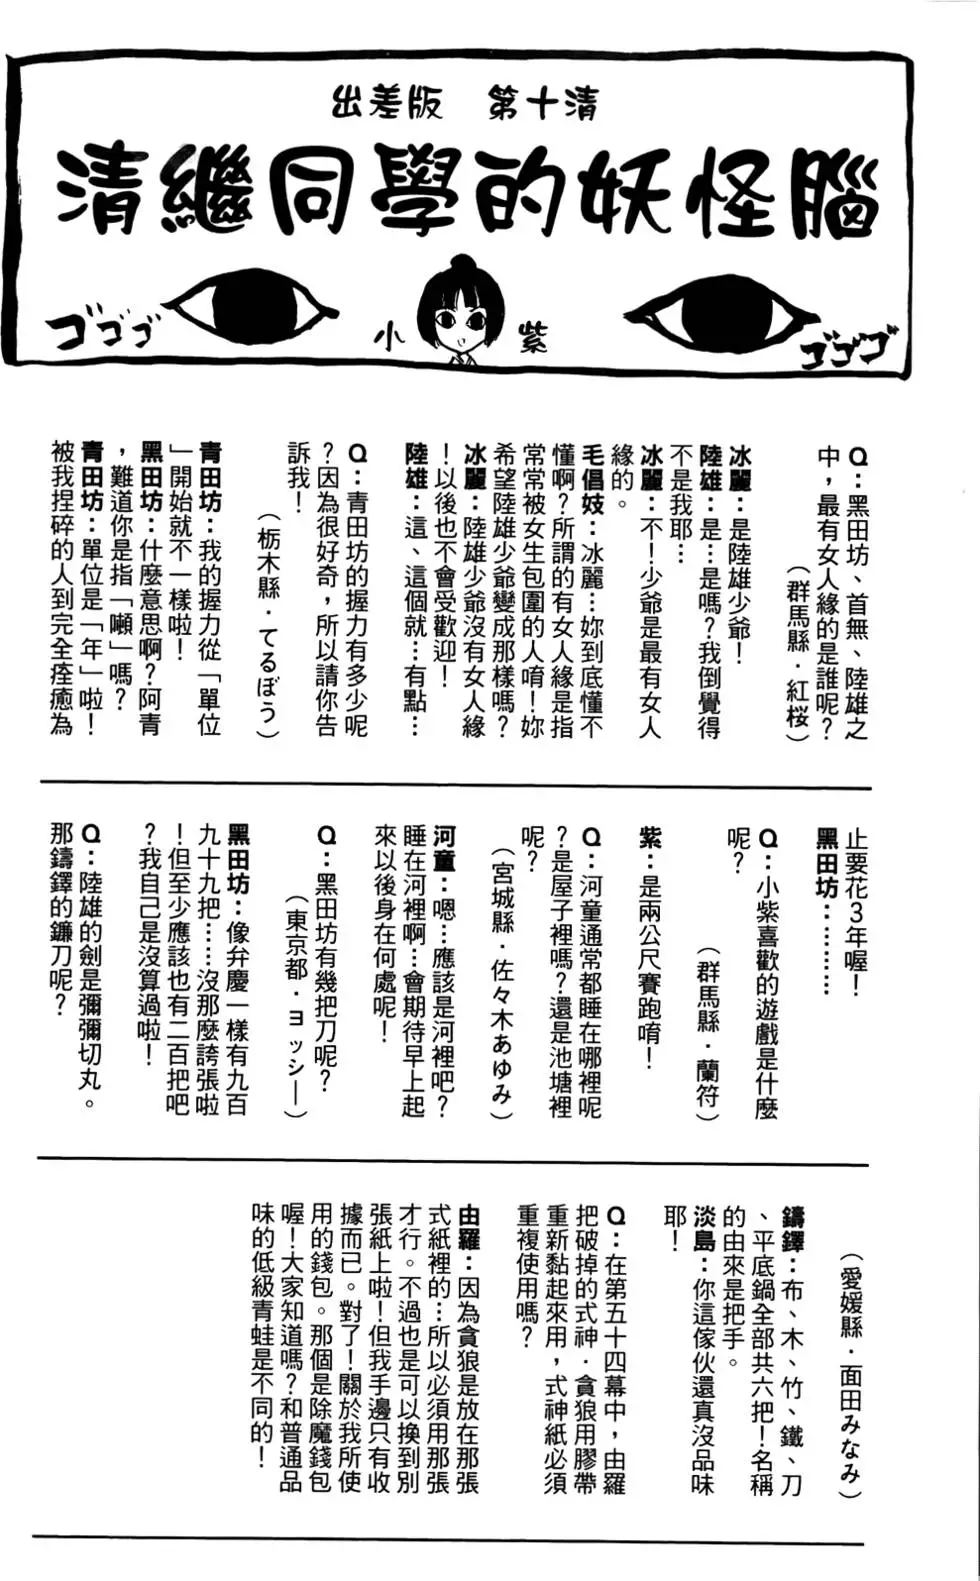 出差版 第十清
清繼同學的妖怪腦
ゴゴゴ
小
紫
ゴゴゴ
Q：黑田坊、首無、陸雄之
中，最有女人緣的是誰呢？
（群馬縣．紅桜）
冰麗：是陸雄少爺！
陸雄：是…是嗎？我倒覺得
不是我耶…
冰麗：不！少爺是最有女人
緣的。
毛倡妓：冰麗…妳到底懂不
懂啊？所謂的有女人緣是指
常常被女生包圍的人唷！妳
希望陸雄少爺變成那樣嗎？
冰麗：陸雄少爺沒有女人緣
！以後也不會受歡迎！
陸雄：這、這個就…有點…
Q：青田坊的握力有多少呢
？因為很好奇，所以請你告
訴我！
（栃木縣．てるぼう）
青田坊：我的握力從「單位
」開始就不一樣啦！
黑田坊：什麼意思啊？阿青
，難道你是指「噸」嗎？
青田坊：單位是「年」啦！
被我捏碎的人到完全痊癒為
止要花3年喔！
黑田坊：…………
Q：小紫喜歡的遊戲是什麼
呢？
（群馬縣．蘭符）
紫：是兩公尺賽跑唷！
Q：河童通常都睡在哪裡呢
？是屋子裡嗎？還是池塘裡
呢？
（宮城縣．佐々木あゆみ）
河童：嗯…應該是河裡吧？
睡在河裡啊…會期待早上起
來以後身在何處呢！
Q：黑田坊有幾把刀呢？
（東京都．ヨッシー）
黑田坊：像弁慶一樣有九百
九十九把……沒那麼誇張啦
！但至少應該也有二百把吧
？我自己是沒算過啦！
Q：陸雄的劍是彌彌切丸。
那鑄鐸的鐮刀呢？
（愛媛縣．面田みなみ）
鑄鐸：布、木、竹、鐵、刀
、平底鍋全部共六把！名稱
的由來是把手。
淡島：你這傢伙還真沒品味
耶！
Q：在第五十四幕中，由羅
把破掉的式神．貪狼用膠帶
重新黏起來用，式神紙必須
重複使用嗎？
由羅：因為貪狼是放在那張
式紙裡的…所以必須用那張
才行。不過也是可以換到別
張紙上啦！但我手邊只有收
據而已。對了！關於我所使
用的錢包。那個是除魔錢包
喔！大家知道嗎？和普通品
味的低級青蛙是不同的！